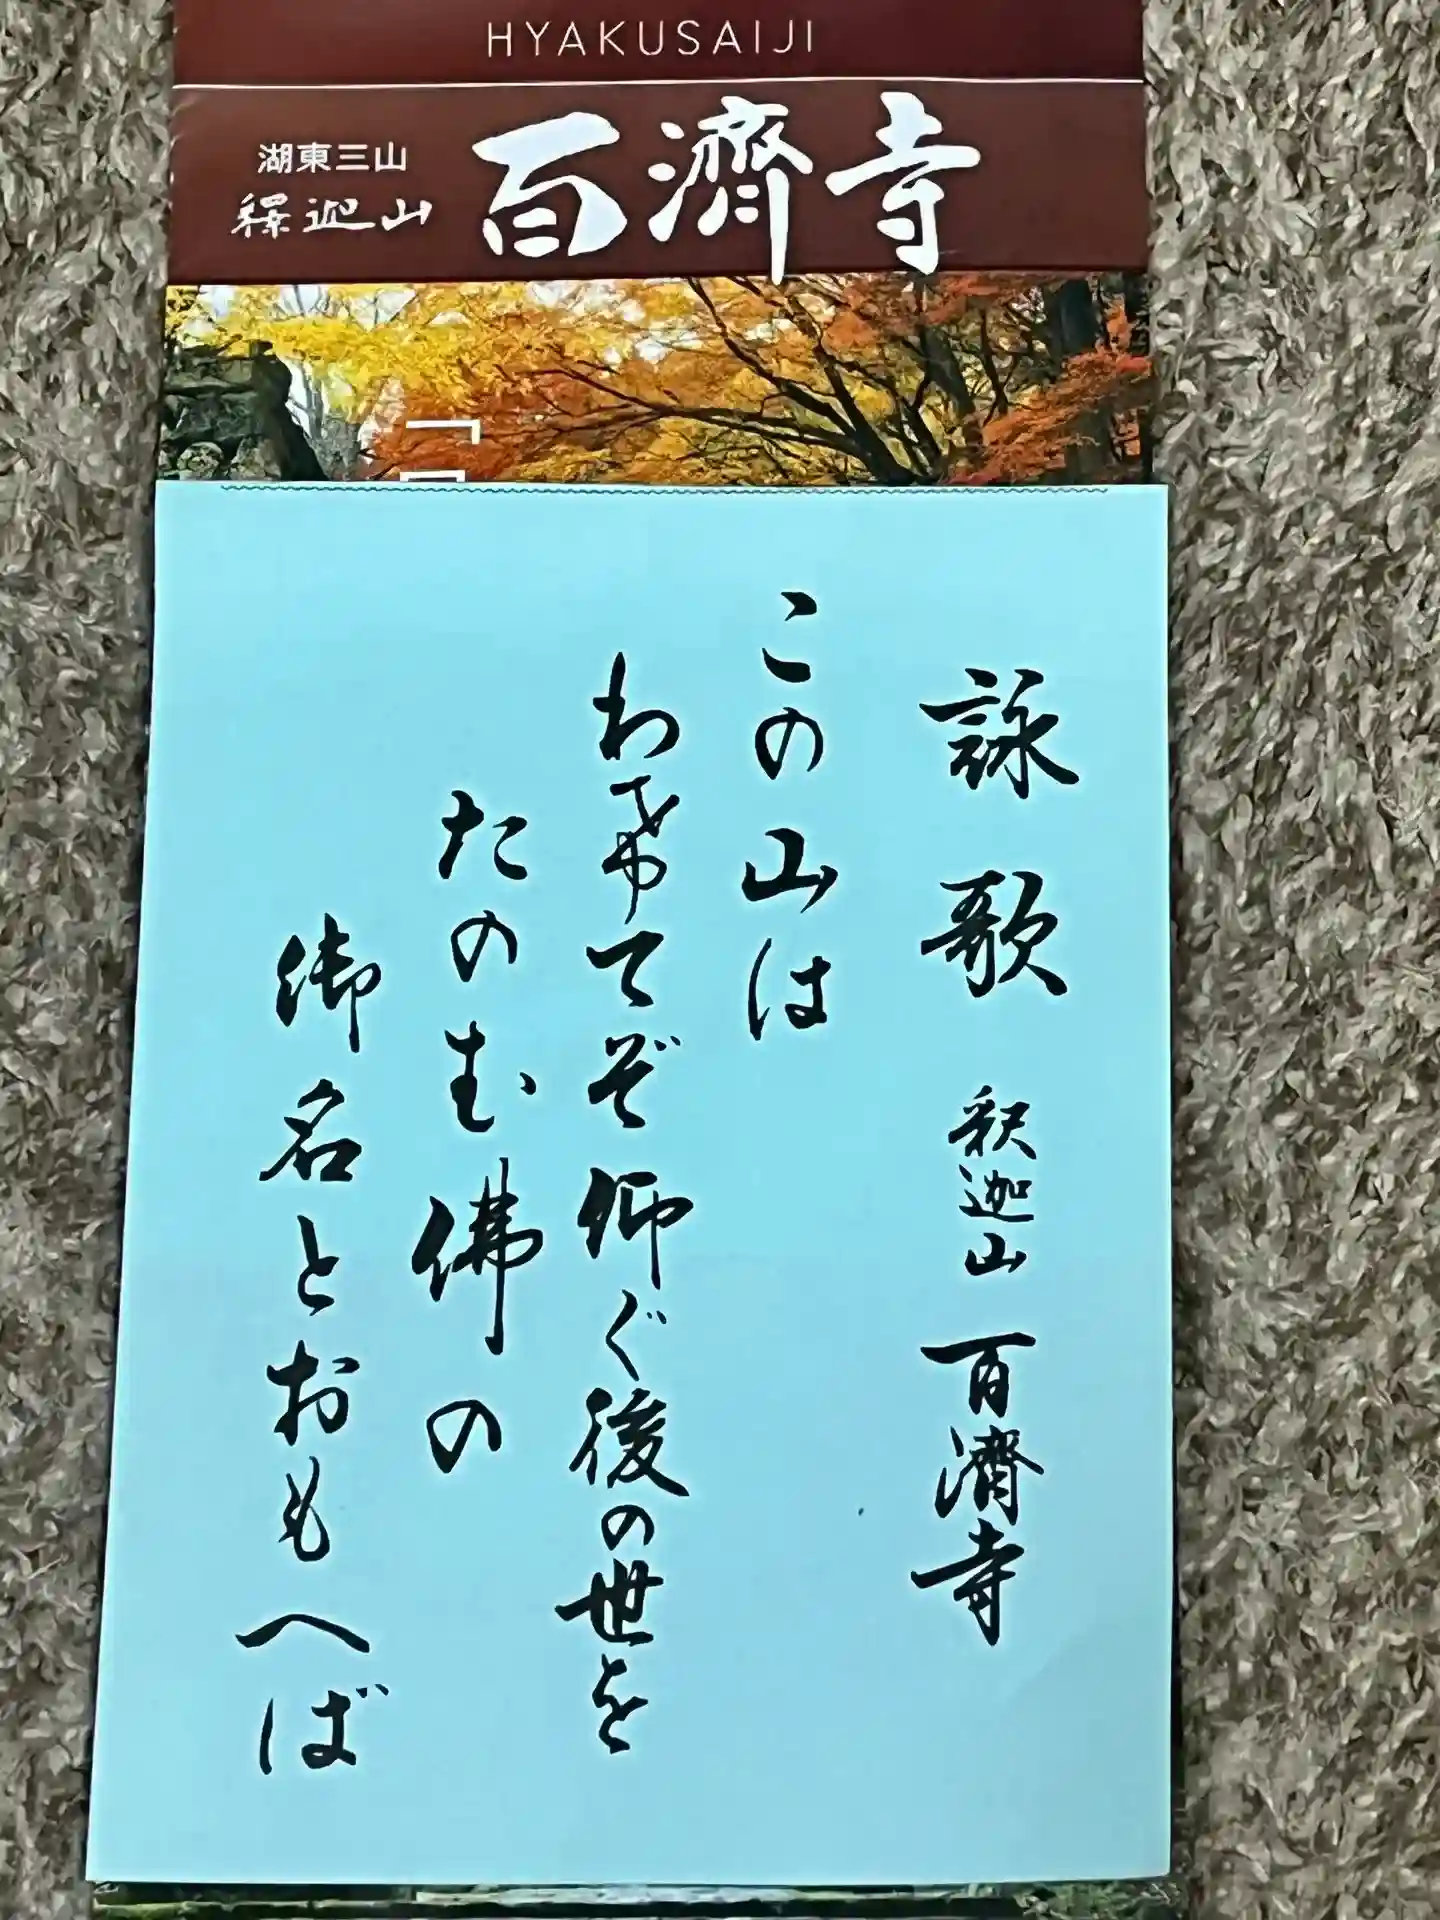 HYAKUSAIJI
湖東三山
釋迦山
百濟寺
詠歌 釈迦山 百濟寺
この山は
わ希てぞ仰ぐ後の世を
たのむ佛の
御名とおもへば